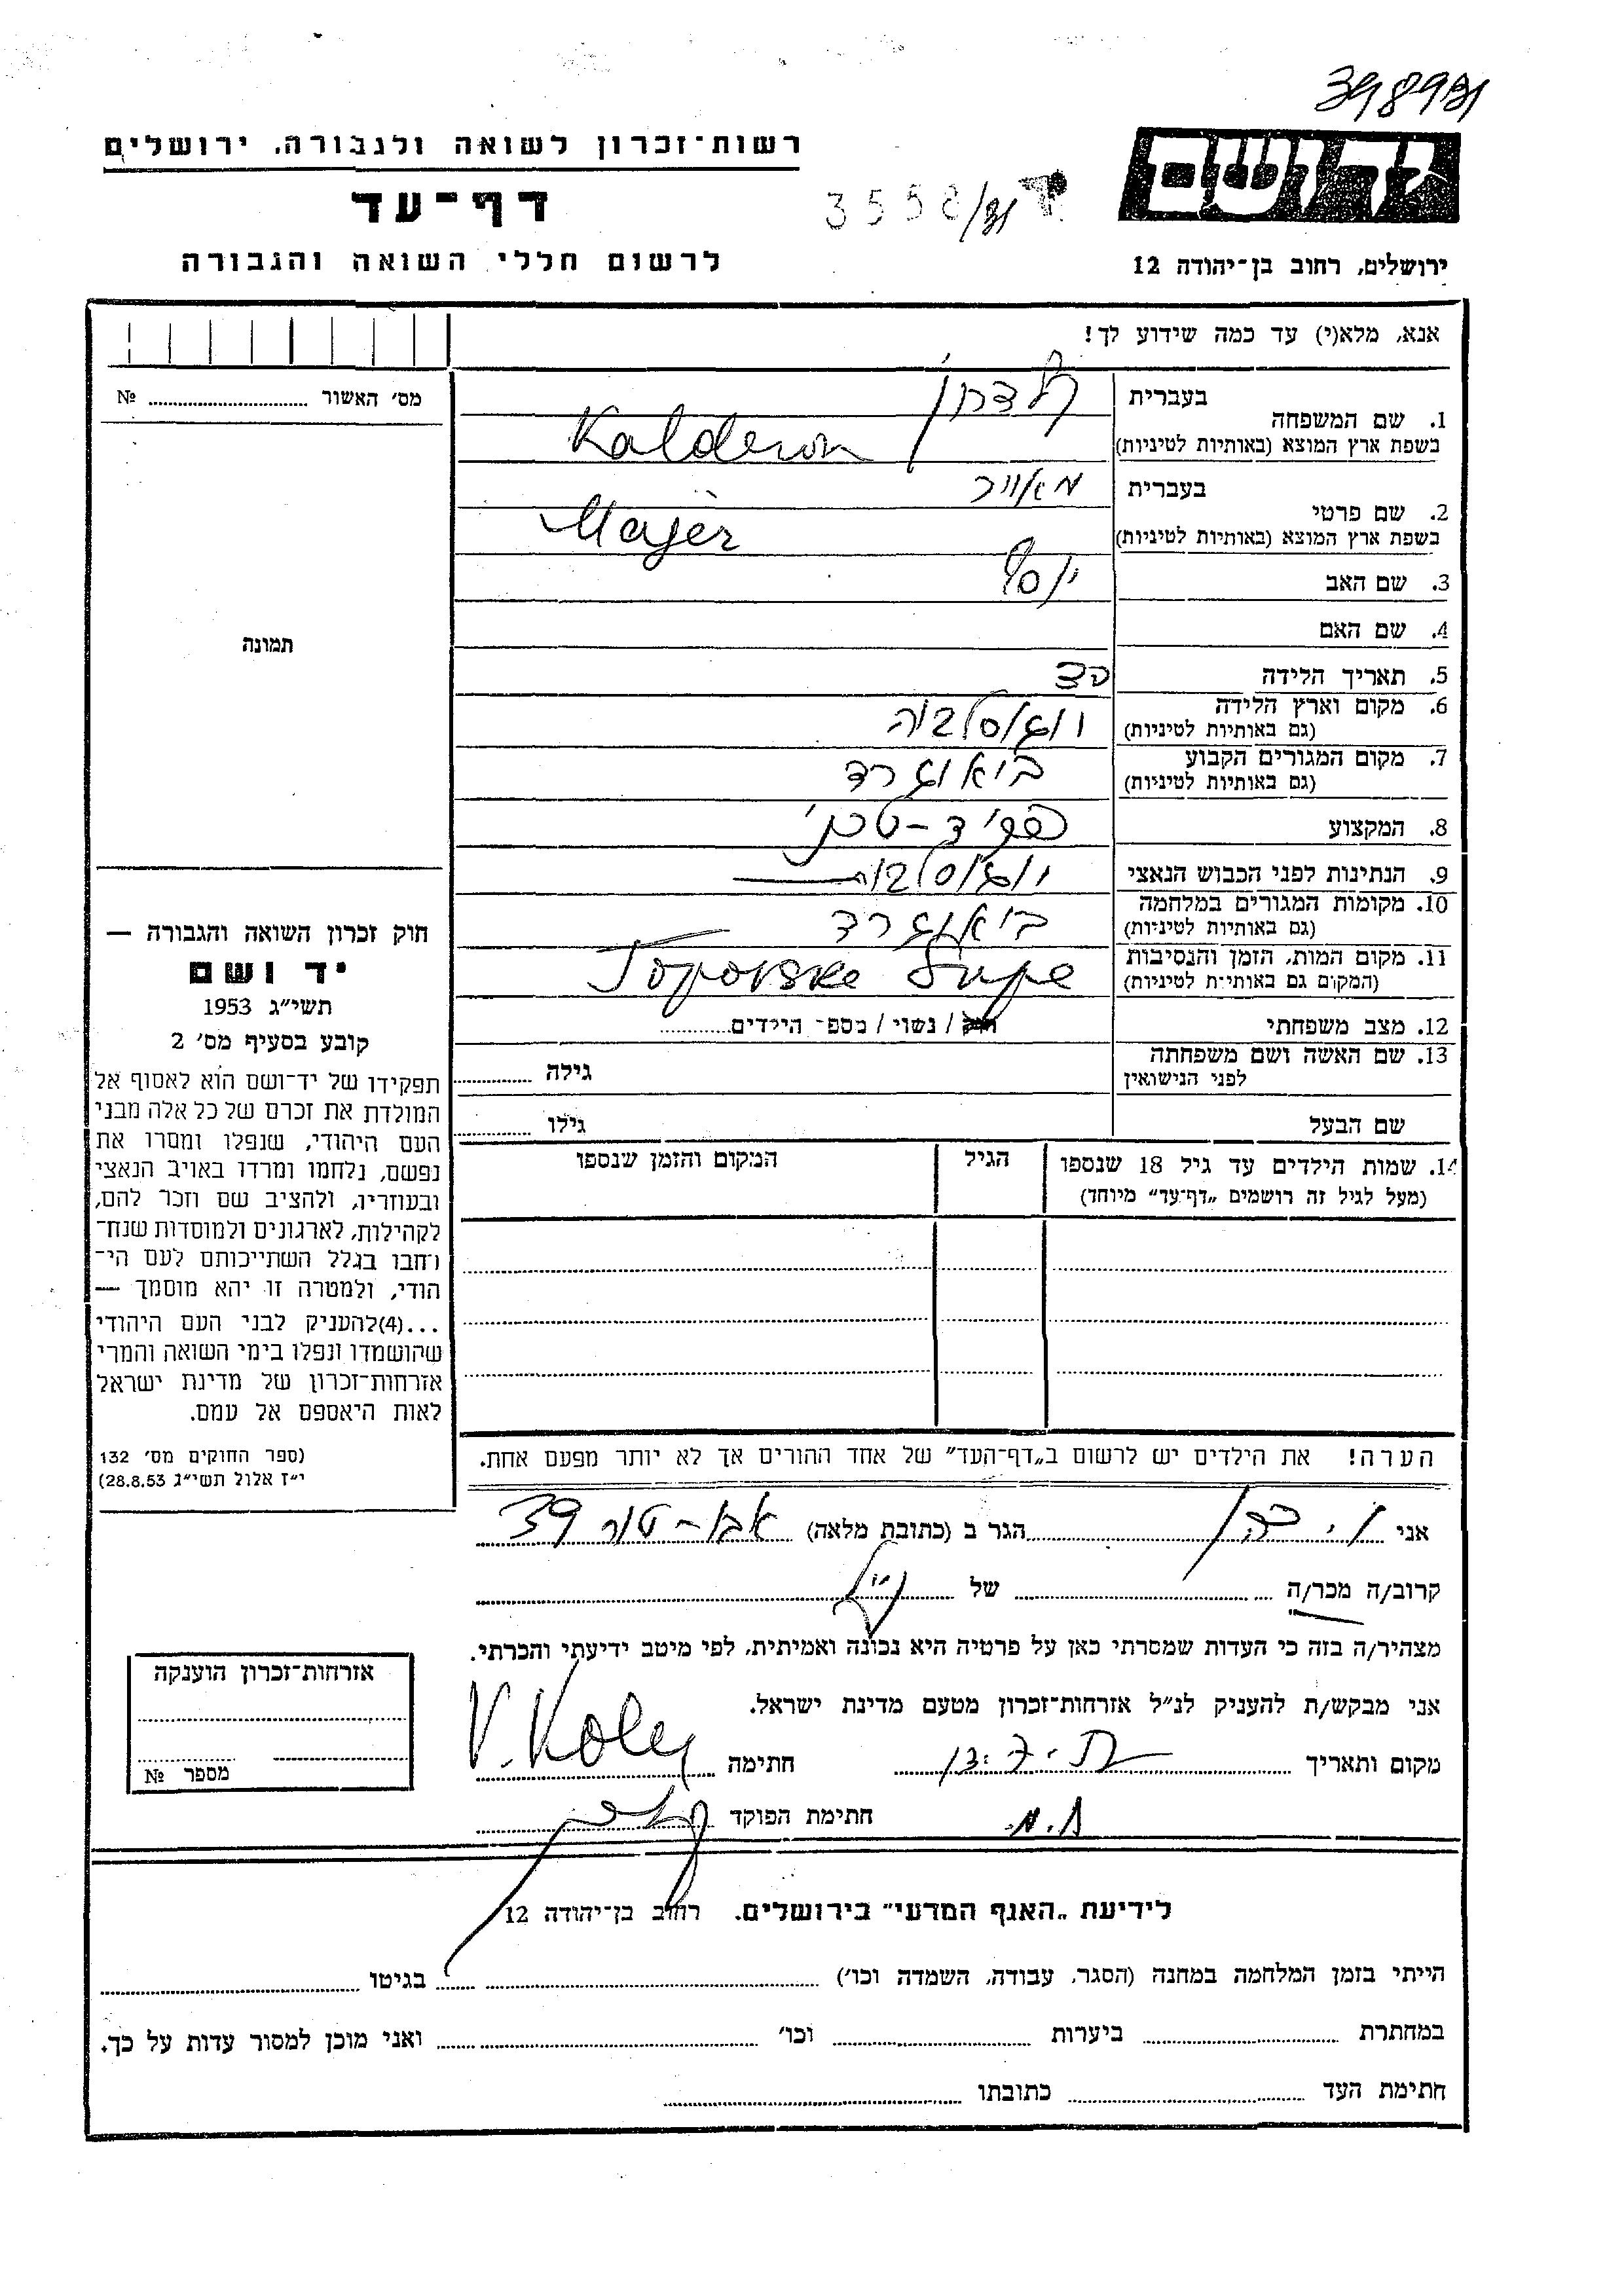 398991
רשות־זכרון לשואה ולגבורה, ירושלים
דף־עד
3558/
לרשום חללי השואה והגבורה
ידושם
ירושלים, רחוב בן־יהודה 12
אנא, מלא(י) עד כמה שידוע לך!
מס׳ האשור № 
תמונה
1. שם המשפחה
בעברית קלדרון
בשפת ארץ המוצא (באותיות לטיניות) Kalderon
2. שם פרטי
בעברית מאייר
בשפת ארץ המוצא (באותיות לטיניות) Majer
3. שם האב יוסף
4. שם האם
5. תאריך הלידה
6. מקום וארץ הלידה יוגוסלביה
(גם באותיות לטיניות)
7. מקום המגורים הקבוע ביאוגרד
(גם באותיות לטיניות)
8. המקצוע פקיד-טכני
9. הנתינות לפני הכבוש הנאצי יוגוסלבית
10. מקומות המגורים במלחמה ביאוגרד
(גם באותיות לטיניות)
11. מקום המות, הזמן והנסיבות Topovske Šupe
(המקום גם באותיות לטיניות)
12. מצב משפחתי רווק / נשוי / מספ־ הילדים
13. שם האשה ושם משפחתה גילה
לפני הנישואין
שם הבעל גילו
14. שמות הילדים עד גיל 18 שנספו
(מעל לגיל זה רושמים „דף־עד״ מיוחד)
הגיל
המקום והזמן שנספו
הערה! את הילדים יש לרשום ב„דף־העד״ של אחד ההורים אך לא יותר מפעם אחת.
חוק זכרון השואה והגבורה —
יד ושם
תשי״ג 1953
קובע בסעיף מס׳ 2
תפקידו של יד־ושם הוא לאסוף אל
המולדת את זכרם של כל אלה מבני
העם היהודי, שנפלו ומסרו את
נפשם, נלחמו ומרדו באויב הנאצי
ובעוזריו, ולהציב שם וזכר להם,
לקהילות, לארגונים ולמוסדות שנח־
רחבו בגלל השתייכותם לעם הי־
הודי, ולמטרה זו יהא מוסמך —
...(4)להעניק לבני העם היהודי
שהושמדו ונפלו בימי השואה והמרי
אזרחות־זכרון של מדינת ישראל
לאות היאספם אל עמם.
(ספר החוקים מס׳ 132
י״ז אלול תשי״ג 28.8.53)
אני הגר ב (כתובת מלאה) אבו-טור 39
קרוב/ה מכר/ה של
מצהיר/ה בזה כי העדות שמסרתי כאן על פרטיה היא נכונה ואמיתית, לפי מיטב ידיעתי והכרתי.
אני מבקש/ת להעניק לנ״ל אזרחות־זכרון מטעם מדינת ישראל.
מקום ותאריך חתימה
חתימת הפוקד
אזרחות־זכרון הוענקה
מספר №
לידיעת „האגף המדעי״ בירושלים. רחוב בן־יהודה 12
הייתי בזמן המלחמה במחנה (הסגר, עבודה, השמדה וכו׳) בגיטו
במחתרת ביערות וכו׳ ואני מוכן למסור עדות על כך.
חתימת העד כתובתו